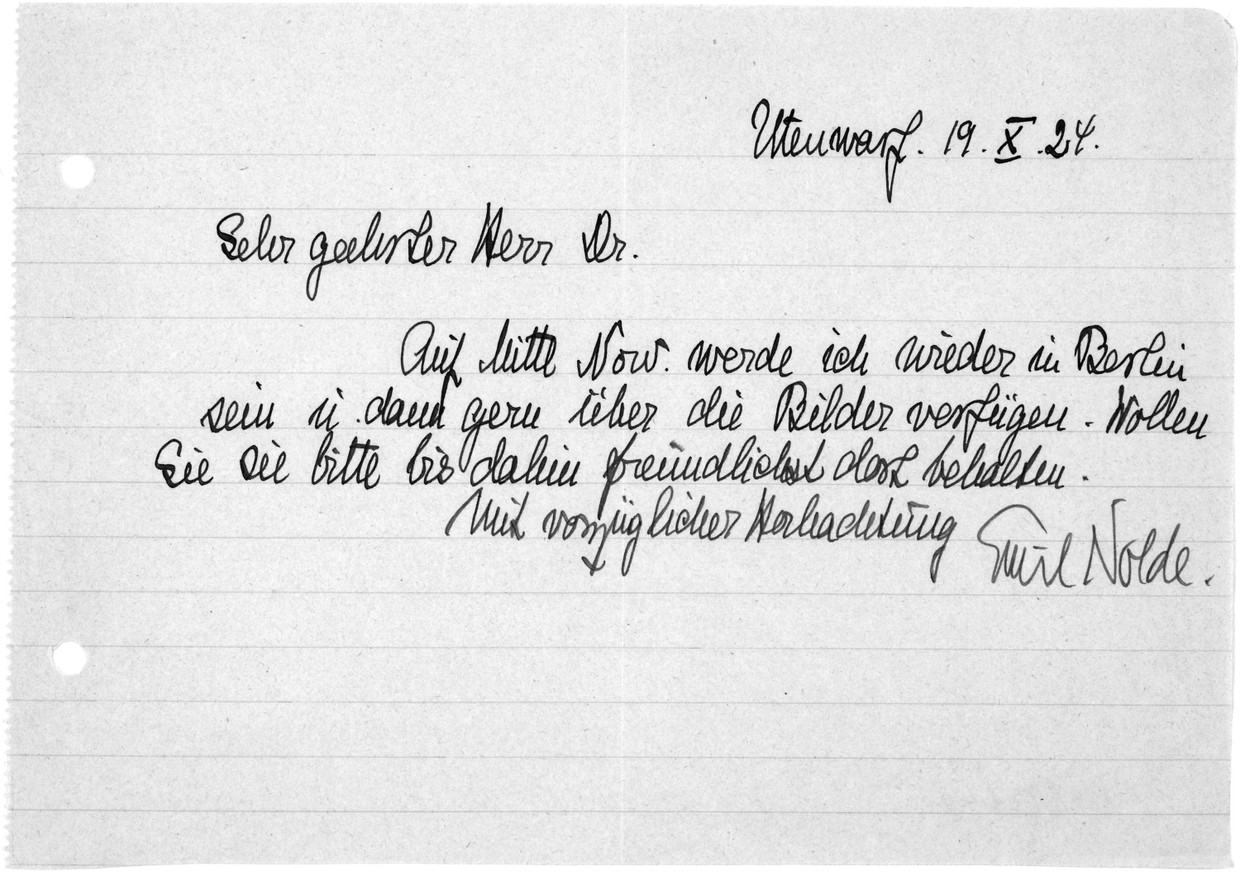 Utenwarf. 19. X. 24.
Sehr geehrter Herr Dr.
Auf Mitte Nov. werde ich wieder in Berlin
sein u. dann gern über die Bilder verfügen. Wollen
Sie sie bitte bis dahin freundlichst dort behalten.
Mit vorzüglicher Hochachtung
Emil Nolde.